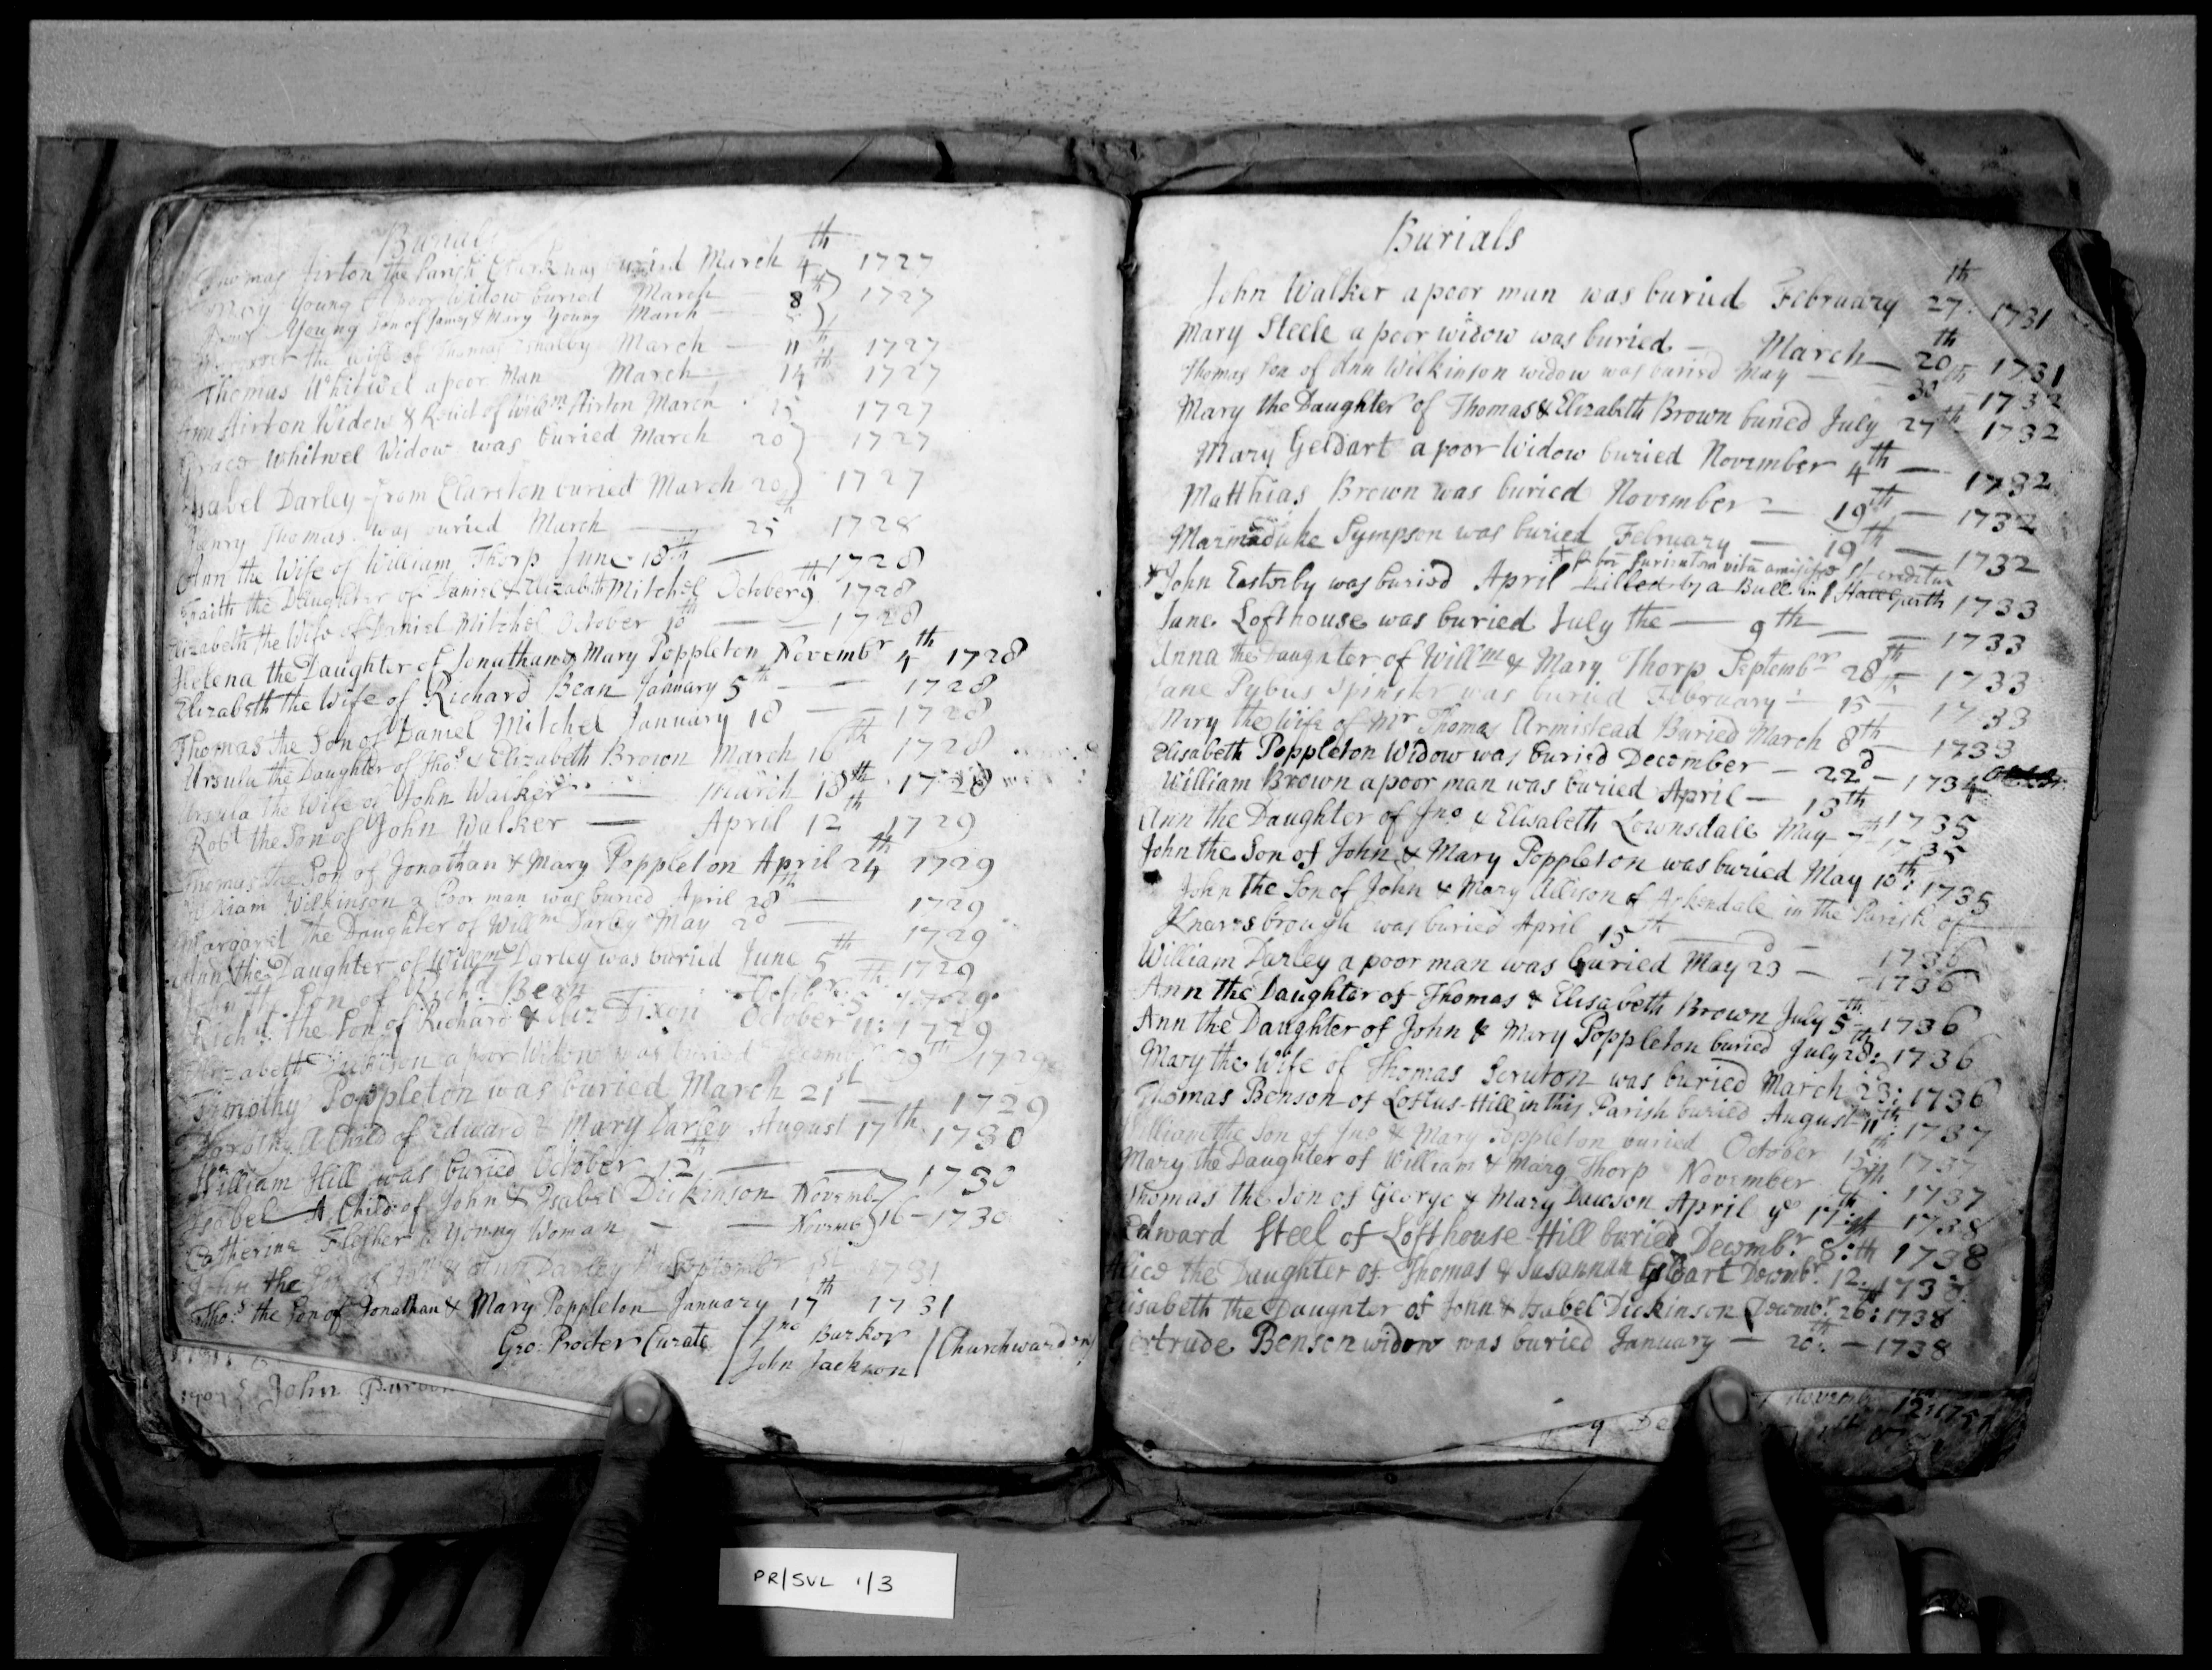 Burials
Thomas Airton the Parish Clark was buried March 4th 1727
Mary Young a poor Widow buried March 8th 1727
Young Son of James & Mary Young March
the wife of Thomas March 11th 1727
Thomas Whitwel a poor Man March 14th 1727
Ann Airton Widow & Relict of Willm Airton March 15 1727
Grace Whitwel Widow was buried March 20 1727
Isabel Darley from Clareton buried March 20 1727
Henry Thomas was buried March 25th 1728
Ann the Wife of William Thorp June 18th 1728
Faith the Daughter of Daniel & Elizabeth Mitchel October 9th 1728
Elizabeth the Wife of Daniel Mitchel October 10th 1728
Helena the Daughter of Jonathan & Mary Poppleton Novembr 4th 1728
Elizabeth the Wife of Richard Bean January 5th 1728
Thomas the Son of Daniel Mitchel January 18 1728
Ursula the Daughter of Thos & Elizabeth Brown March 16th 1728
Ursula the Wife of John Walker March 18th 1728
Robt the Son of John Walker April 12th 1729
Thomas the Son of Jonathan & Mary Poppleton April 24th 1729
William Wilkinson a Poor man was buried April 28th 1729
Margaret the Daughter of Willm Darley May 2d 1729
Ann the Daughter of Willm Darley was buried June 5th 1729
John the Son of Richd Bean October 5th 1729
Richd the Son of Richard & Eliz Dixon October 11: 1729
Elizabeth a poor Widow was buried Decembr 29th 1729
Timothy Poppleton was buried March 21st 1729
Dorothy A Child of Edward & Mary Darley August 17th 1730
William Hill was buried October 12th 1730
Isabel A Child of John & Isabel Dickinson Novembr
Catherine Flesher a Young Woman Novembr 16 - 1730
John the Son of & Ann Darley Septembr 1st 1731
Thos the Son of Jonathan & Mary Poppleton January 17th 1731
Geo: Procter Curate Jno Barker
John Jackson Churchwardens
John
PR/SVL 1/3
Burials
John Walker a poor man was buried February 27th: 1731
Mary Steele a poor widow was buried March 20th 1731
Thomas Son of Ann Wilkinson widow was buried May 30th 1732
Mary the Daughter of Thomas & Elizabeth Brown buried July 27th 1732
Mary Geldart a poor Widow buried November 4th 1732
Matthias Brown was buried November 19th 1732
Marmaduke Sympson was buried February 19th 1732
John Easterby was buried April killed by a Bull in 1733
Jane Lofthouse was buried July the 9th 1733
Anna the Daughter of Willm & Mary Thorp Septembr 28th 1733
Jane Pybus Spinster was buried February 15th 1733
Mary the Wife of Mr Thomas Armistead Buried March 8th 1733
Elisabeth Poppleton Widow was buried December 22d 1734
William Brown a poor man was buried April 13th 1735
Ann the Daughter of Jno & Elisabeth Lownsdale May 7th 1735
John the Son of John & Mary Poppleton was buried May 10th: 1735
John the Son of John & Mary Allison of Arkendale in the Parish of
Knaresbrough was buried April 15th 1736
William Darley a poor man was buried May 23 1736
Ann the Daughter of Thomas & Elisabeth Brown July 5th 1736
Ann the Daughter of John & Mary Poppleton buried July 28th: 1736
Mary the Wife of Thomas Scruton was buried March 23: 1736
Thomas Benson of Loftus-Hill in this Parish buried August 11th: 1737
William the Son of Jno & Mary Poppleton buried October 15th 1737
Mary the Daughter of William & Marg Thorp November 1737
Thomas the Son of George & Mary Dawson April ye 17th 1738
Edward Steel of Lofthouse-Hill buried Decembr 8:th 1738
Alice the Daughter of Thomas & Susannah Geldart Decembr 12: 1738
Elisabeth the Daughter of John & Isabel Dickinson Decembr 26: 1738
Gertrude Benson widow was buried January 20th: 1738